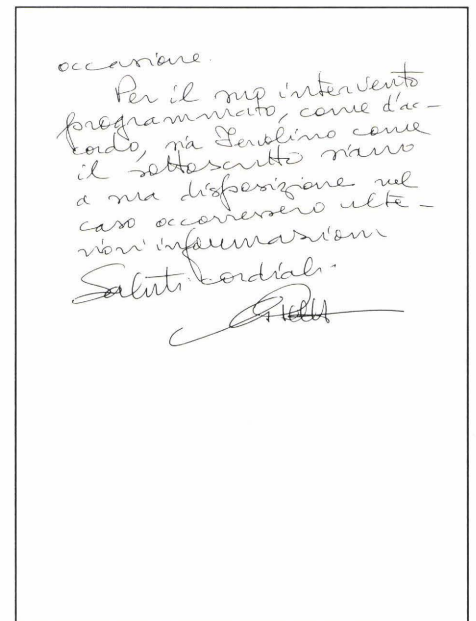 occasione.
Per il suo intervento
programmato, come d'ac-
cordo, sia come
il sottoscritto siamo
a sua disposizione nel
caso occorressero ulte-
riori informazioni
Saluti cordiali.